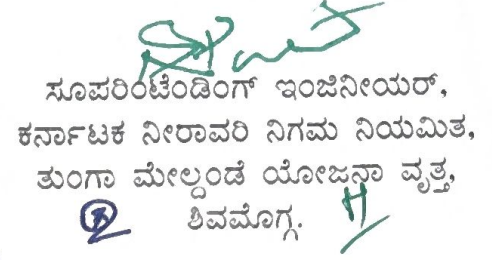 ಸೂಪರಿಂಟೆಂಡಿಂಗ್ ಇಂಜಿನೀಯರ್,
ಕರ್ನಾಟಕ ನೀರಾವರಿ ನಿಗಮ ನಿಯಮಿತ,
ತುಂಗಾ ಮೇಲ್ದಂಡೆ ಯೋಜನಾ ವೃತ್ತ,
ಶಿವಮೊಗ್ಗ.